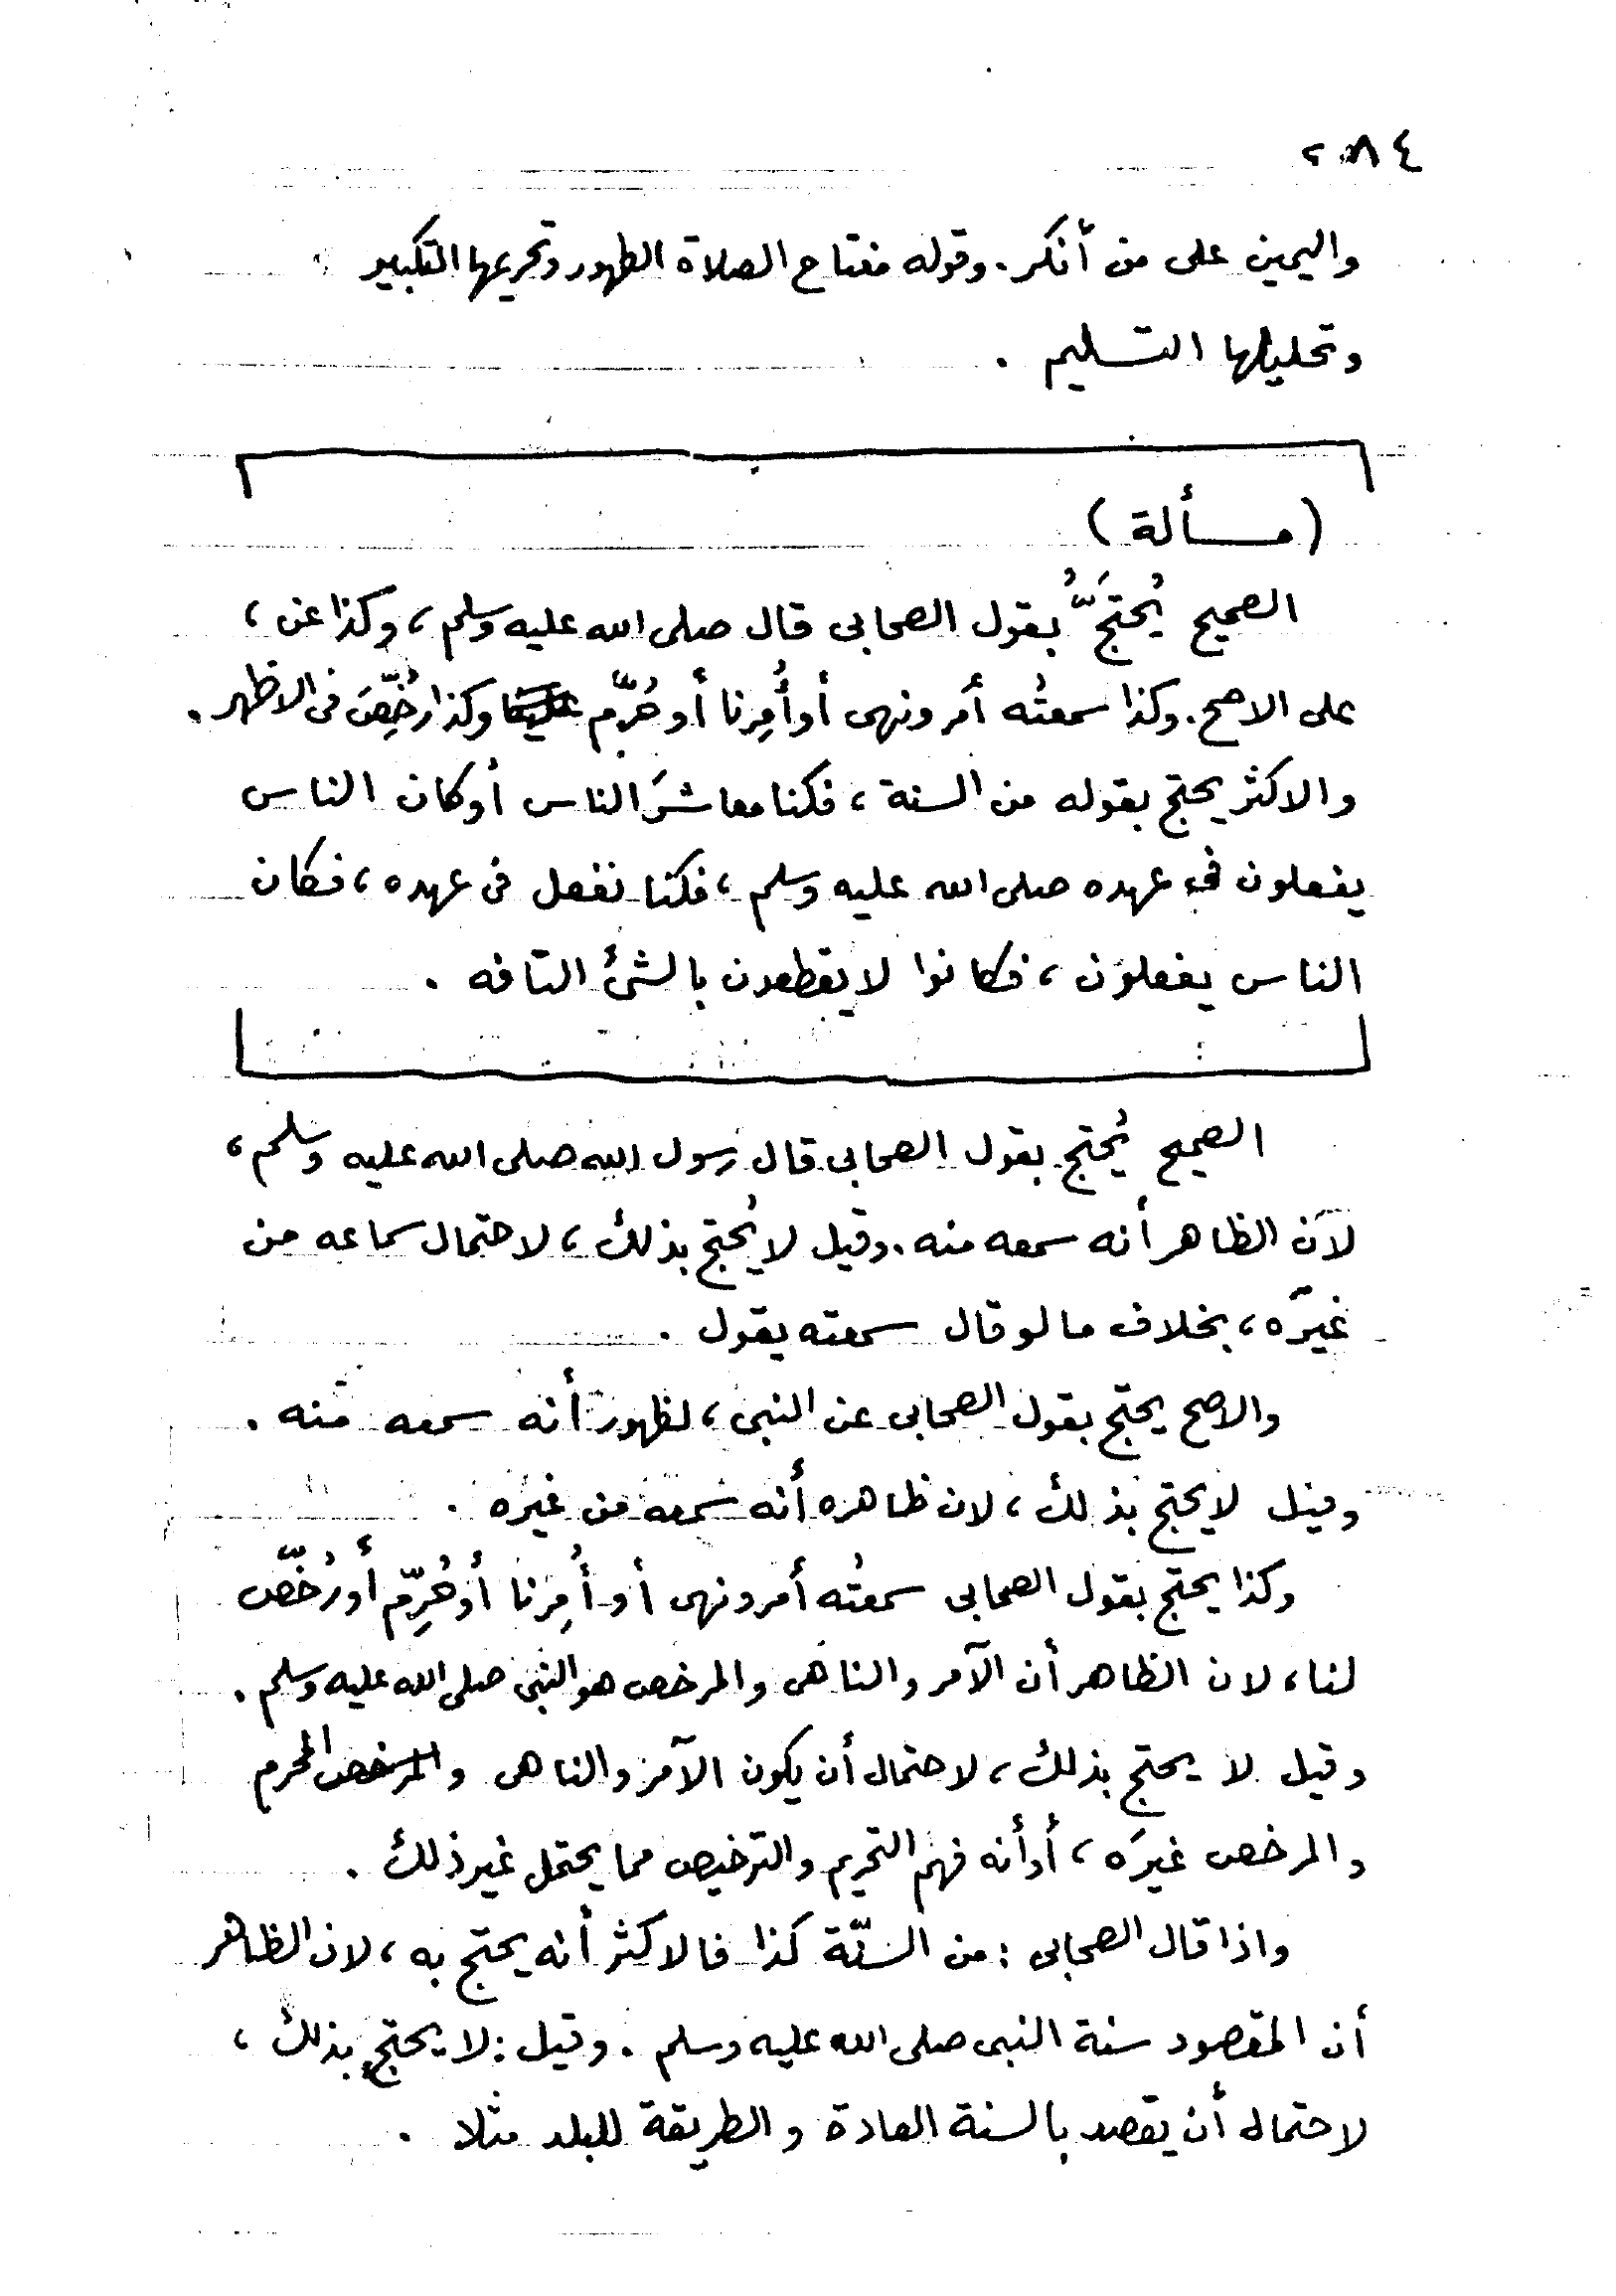 ٢٨٤
واليمين على من أنكر . وقوله مفتاح الصلاة الطهور وتحريمها التكبير
وتحليلها التسليم .
( مسألة )
الصحيح يُحتَجُّ بقول الصحابى قال صلى الله عليه وسلم ، وكذا عن ،
على الاصح . وكذا سمعتُه أمر ونهى أو أُمِرنا أو حُرّم وكذا رُخِّصَ فى الاظهر .
والاكثر يحتج بقوله من السنة ، فكنا معاشرَ الناس أو كان الناس
يفعلون فى عهده صلى الله عليه وسلم ، فكنا نفعل فى عهده ، فكان
الناس يفعلون ، فكانوا لا يقطعون بالشئ التافه .
الصحيح يُحتج بقول الصحابى قال رسول الله صلى الله عليه وسلم ،
لأن الظاهر أنه سمعه منه . وقيل لا يُحتج بذلك ، لاحتمال سماعه من
غيره ، بخلاف ما لو قال سمعته يقول .
والاصح يحتج بقول الصحابى عن النبى ، لظهور أنه سمعه منه .
وقيل لا يحتج بذلك ، لان ظاهره أنه سمعه من غيره .
وكذا يحتج بقول الصحابى سمعتُه أمر ونهى أو أُمِرنا أو حُرِّم أو رُخّص
لنا ، لان الظاهر أن الآمر والناهى والمرخص هو النبى صلى الله عليه وسلم .
وقيل لا يحتج بذلك ، لاحتمال أن يكون الآمر والناهى والمرخص المحرم
والمرخص غيرَه ، أو أنه فهم التحريم والترخيص مما يحتمل غير ذلك .
واذا قال الصحابى : من السنّة كذا فالاكثر أنه يحتج به ، لان الظاهر
أن المقصود سنة النبى صلى الله عليه وسلم . وقيل : لا يحتج بذلك ،
لاحتمال أن يقصد بالسنة العادة والطريقة للبلد مثلا .